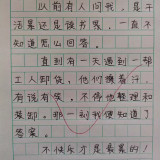 以前有人问我,是干
活累还是读书累,一直不
知道怎么回答。
直到有一天遇到一帮
工人卸货,他们嗨着汗,
有说有笑,不停地整理和
装卸。那一刻我便知道了
答案。
不快乐才是最累的!